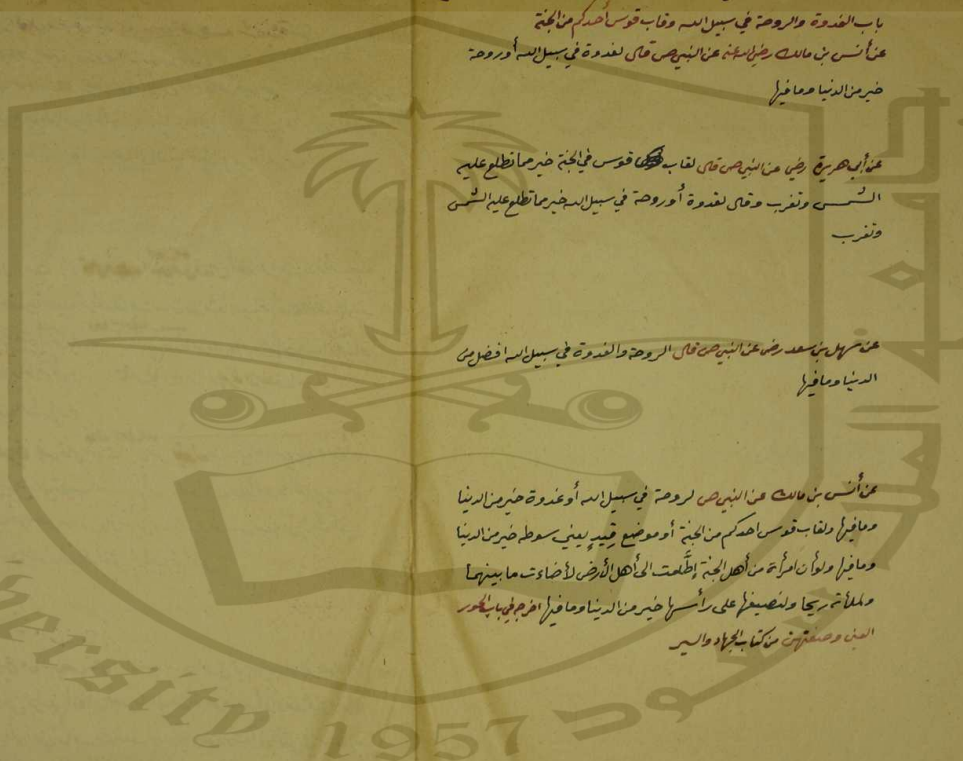 باب الغدوة والروحة في سبيل الله وقاب قوس أحدكم من الجنة
عن أنس بن مالك رضي الله عنه عن النبي ص قال لغدوة في سبيل الله أو روحة
خير من الدنيا وما فيها
عن أبي هريرة رضي عن النبي ص قال لقاب قوس في الجنة خير مما تطلع عليه
الشمس وتغرب وقال لغدوة أو روحة في سبيل الله خير مما تطلع عليه الشمس
وتغرب
عن سهل بن سعد رض عن النبي ص قال الروحة والغدوة في سبيل الله افضل من
الدنيا وما فيها
عن أنس بن مالك عن النبي ص لروحة في سبيل الله أو غدوة خير من الدنيا
وما فيها ولقاب قوس احدكم من الجنة أو موضع قِيدٍ يعني سوطه خير من الدنيا
وما فيها ولو أن امرأة من أهل الجنة إطَّلعت الى أهل الأرض لأضاءت ما بينهما
ولملأته ريحا ولنصيفها على رأسها خير من الدنيا وما فيها اخرجه في باب الحور
العين وصفتهن من كتاب الجهاد والسير
جامعة الملك سعود
versity 1957